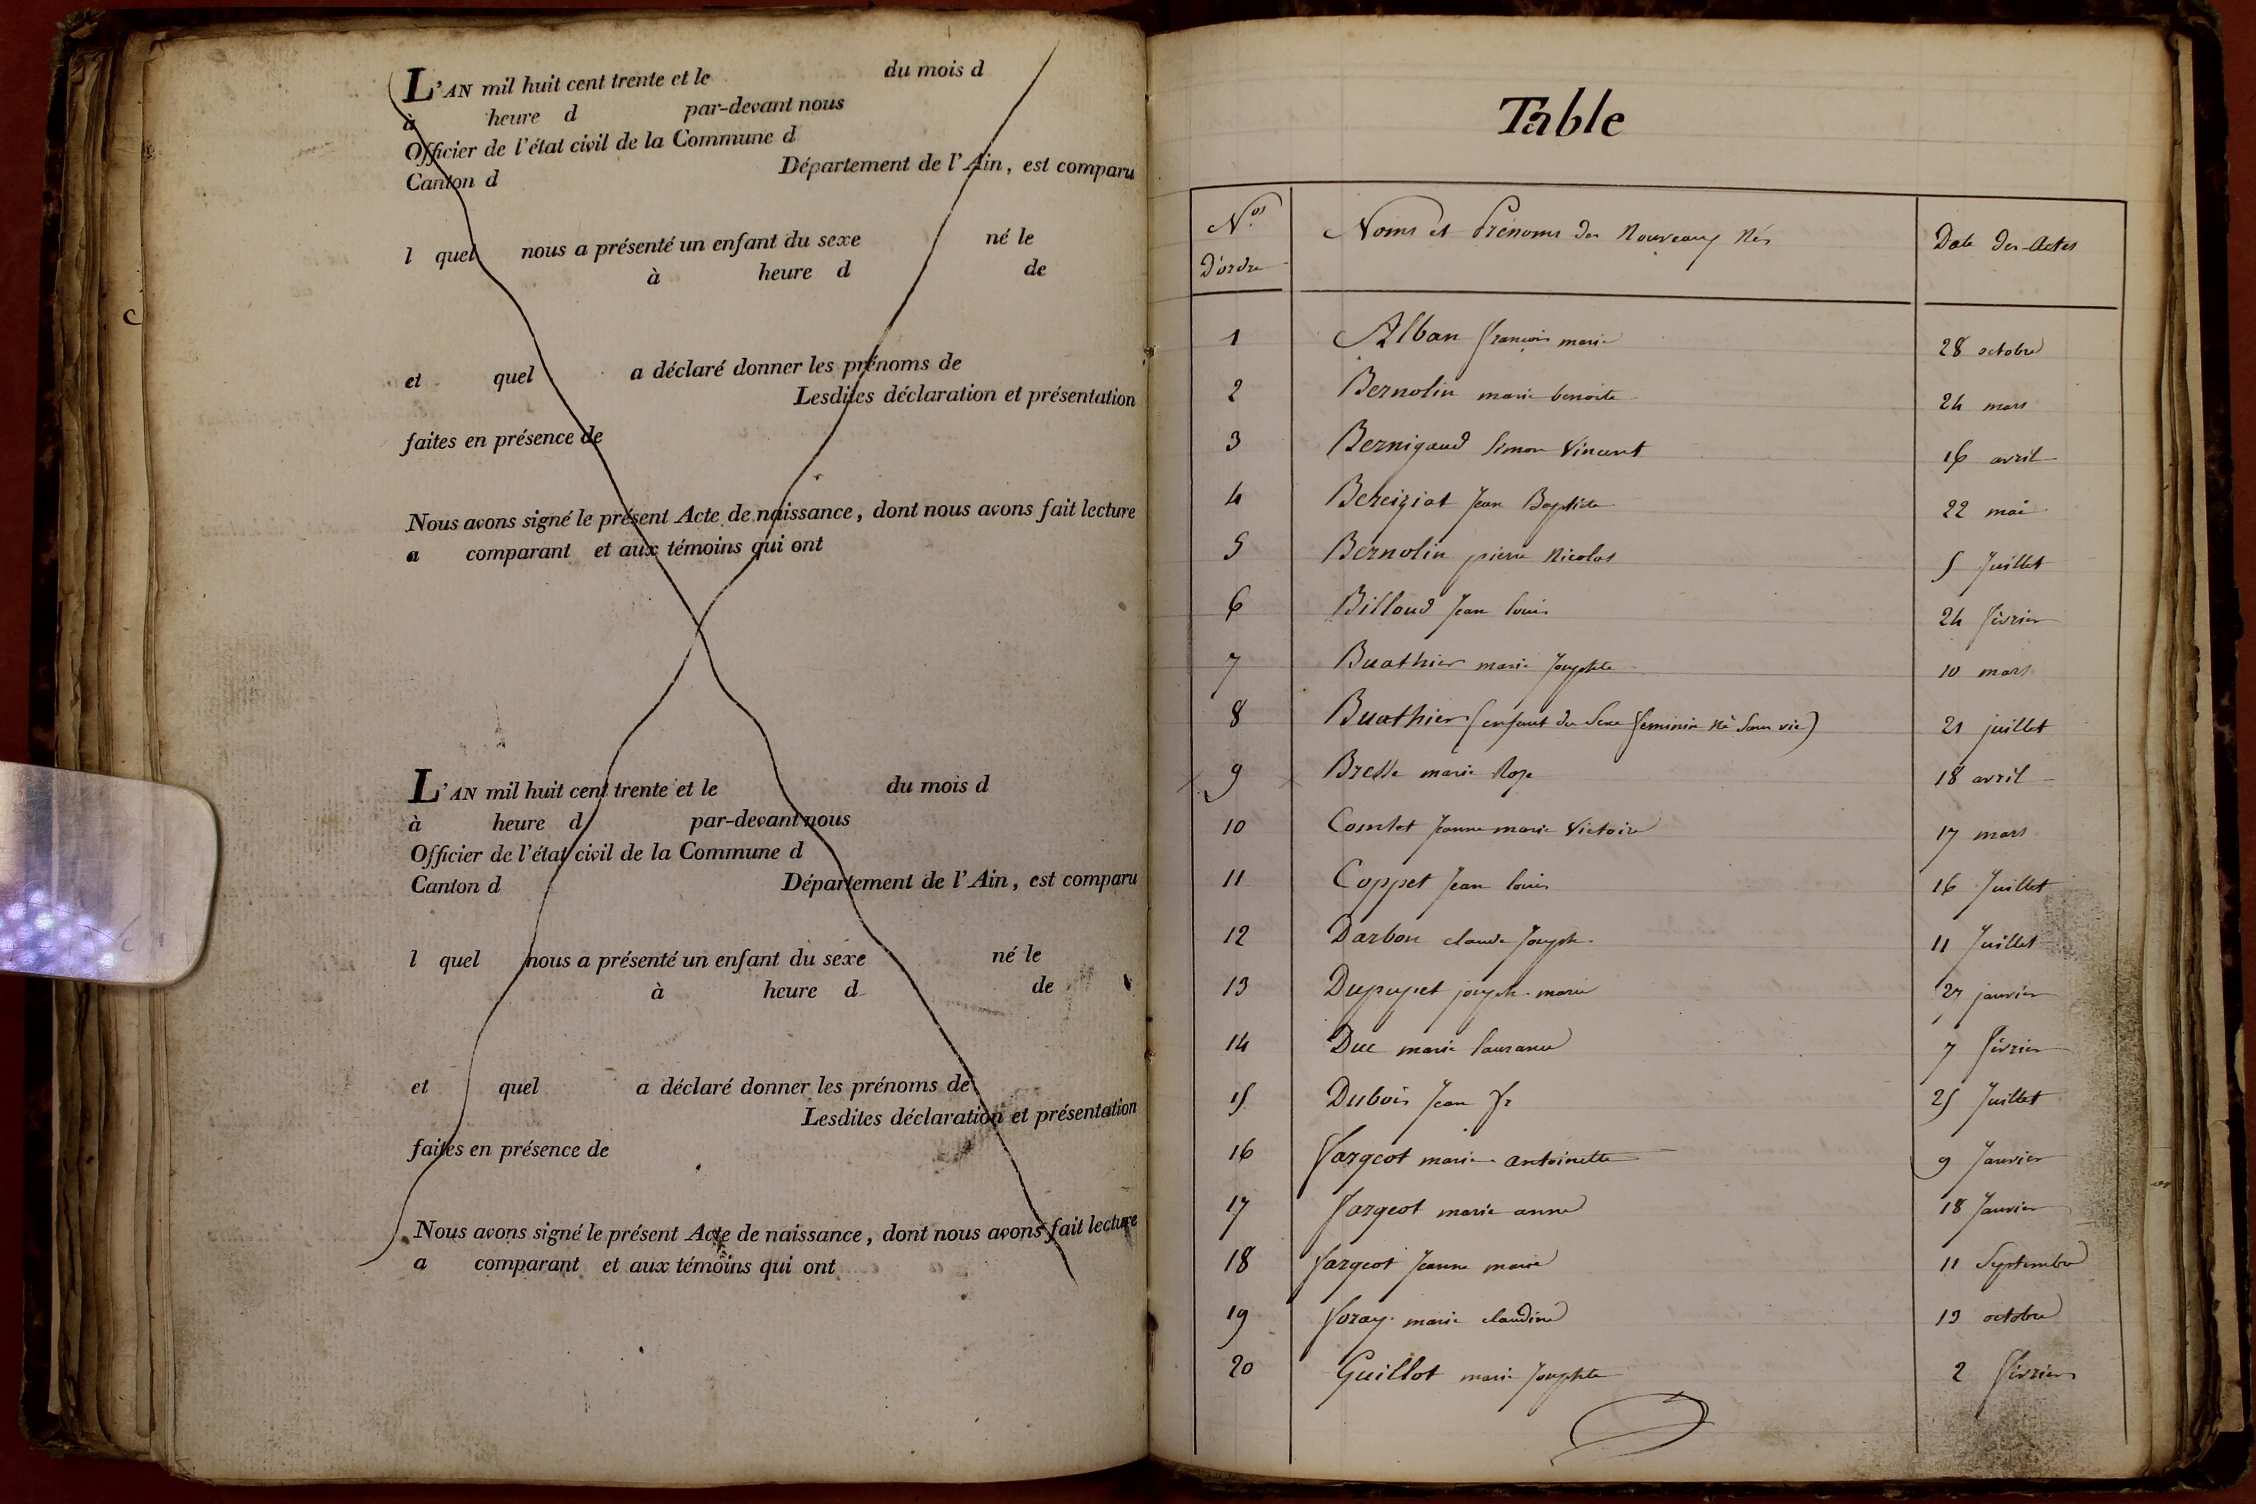 L'AN mil huit cent trente et le du mois d
à heure d par-devant nous
Officier de l'état civil de la Commune d
Canton d Département de l'Ain, est comparu
l quel nous a présenté un enfant du sexe né le
à heure d de
et quel a déclaré donner les prénoms de
Lesdites déclaration et présentation
faites en présence de
Nous avons signé le présent Acte de naissance, dont nous avons fait lecture
a comparant et aux témoins qui ont
L'AN mil huit cent trente et le du mois d
à heure d par-devant nous
Officier de l'état civil de la Commune d
Canton d Département de l'Ain, est comparu
l quel nous a présenté un enfant du sexe né le
à heure d de
et quel a déclaré donner les prénoms de
Lesdites déclaration et présentation
faites en présence de
Nous avons signé le présent Acte de naissance, dont nous avons fait lecture
a comparant et aux témoins qui ont
Table
Nos D'ordre Noms et Prénoms des Nouveaux Nés Date des Actes
1 Alban françois marie 28 octobre
2 Bernolin marie benoite 24 mars
3 Bernigaud Simon Vincent 16 avril
4 Bereiziat Jean Baptiste 22 mai
5 Bernolin pierre Nicolas 5 Juillet
6 Billoud Jean louis 24 février
7 Buathier marie Josephte 10 mars
8 Buathier (enfant du Sexe feminin né Sans vie) 21 juillet
9 Bresse marie Rose 18 avril
10 Comtet Jeanne marie Victoire 17 mars
11 Coppet Jean louis 16 Juillet
12 Darbon claude Joseph 11 Juillet
13 Dupupet joseph marie 27 janvier
14 Duc marie laurance 7 février
15 Dubois Jean fs 25 Juillet
16 fargeot marie antoinette 9 Janvier
17 fargeot marie anne 18 Janvier
18 fargeot Jeanne marie 11 Septembre
19 foray marie claudine 13 octobre
20 Guillot marie Josephte 2 février